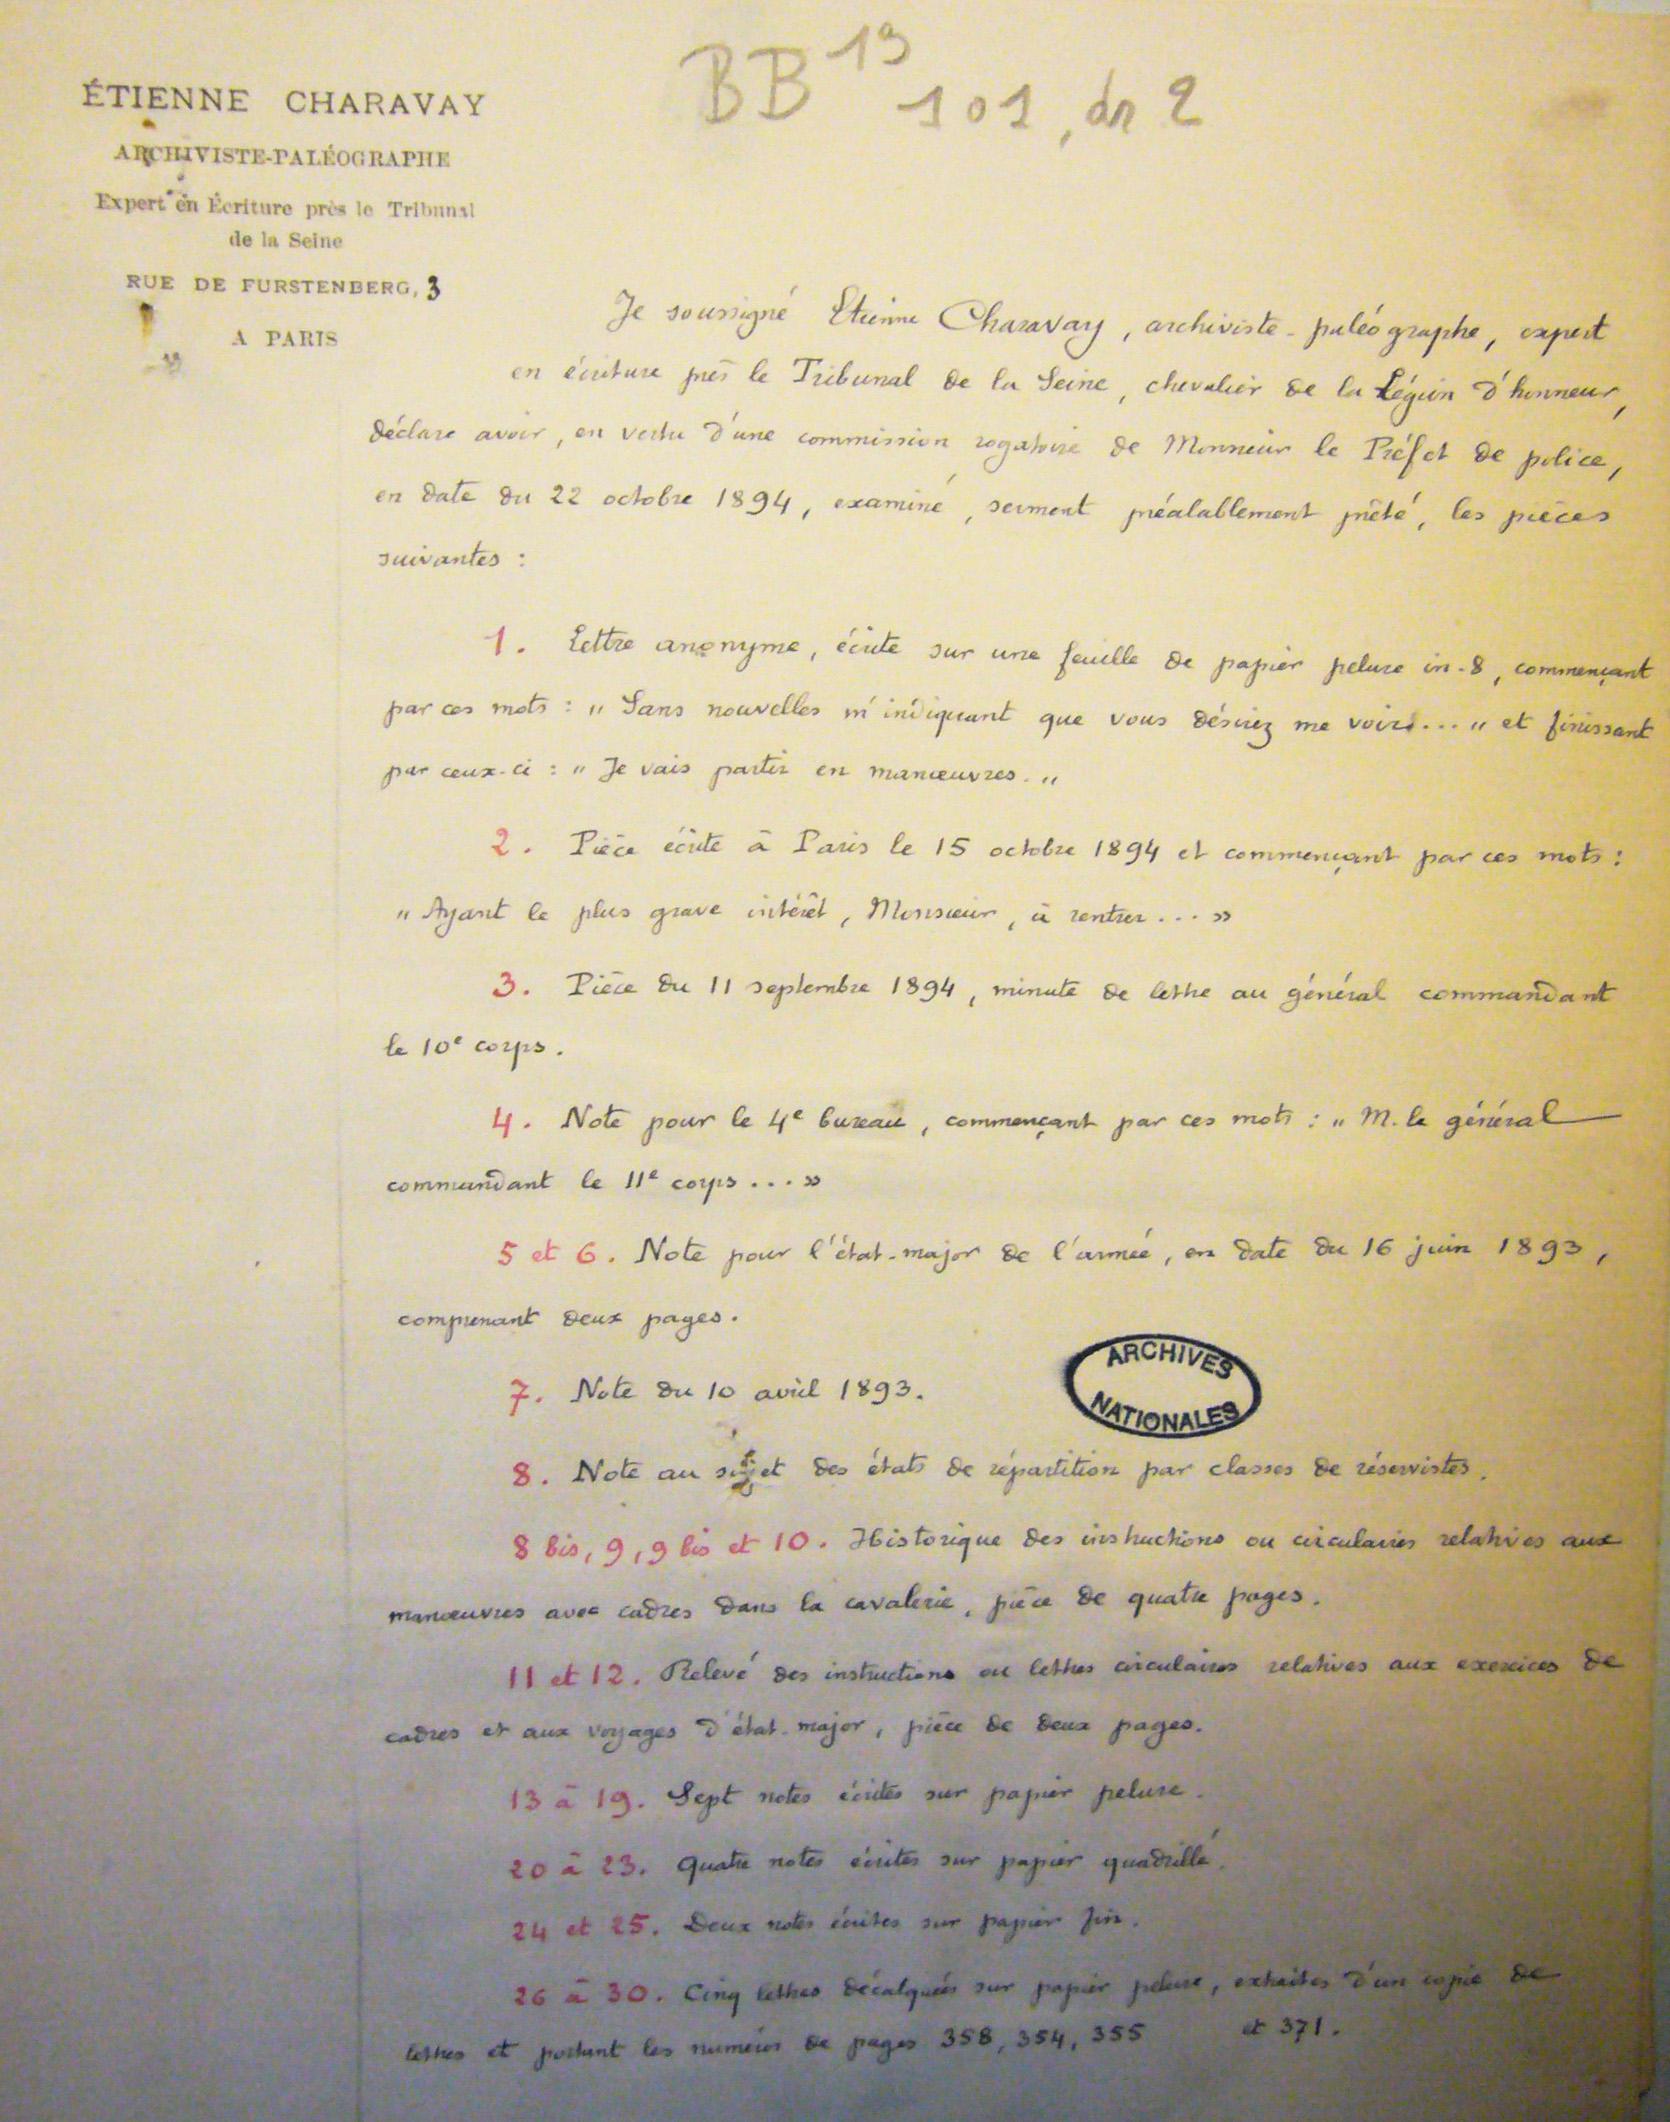 BB 19 101, dr 2
ÉTIENNE CHARAVAY
ARCHIVISTE-PALÉOGRAPHE
Expert en Écriture près le Tribunal
de la Seine
RUE DE FURSTENBERG, 3
A PARIS
Je soussigné Etienne Charavay, archiviste-paléographe, expert
en écriture près le Tribunal de la Seine, chevalier de la Légion d'honneur,
déclare avoir, en vertu d'une commission rogatoire de Monsieur le Préfet de police,
en date du 22 octobre 1894, examiné, serment préalablement prêté, les pièces
suivantes :
1. Lettre anonyme, écrite sur une feuille de papier pelure in-8, commençant
par ces mots : " Sans nouvelles m'indiquant que vous désirez me voir... " et finissant
par ceux-ci : " Je vais partir en manœuvres. "
2. Pièce écrite à Paris le 15 octobre 1894 et commençant par ces mots :
" Ayant le plus grave intérêt, Monsieur, à rentrer... »
3. Pièce du 11 septembre 1894, minute de lettre au général commandant
le 10e corps.
4. Note pour le 4e bureau, commençant par ces mots : " M. le général
commandant le 11e corps... »
5 et 6. Note pour l'état-major de l'armée, en date du 16 juin 1893,
comprenant deux pages.
ARCHIVES
NATIONALES
7. Note du 10 avril 1893.
8. Note au sujet des états de répartition par classes de réservistes.
8 bis, 9, 9 bis et 10. Historique des instructions ou circulaires relatives aux
manœuvres avec cadres dans la cavalerie, pièce de quatre pages.
11 et 12. Relevé des instructions ou lettres circulaires relatives aux exercices de
cadres et aux voyages d'état-major, pièce de deux pages.
13 à 19. Sept notes écrites sur papier pelure.
20 à 23. Quatre notes écrites sur papier quadrillé.
24 et 25. Deux notes écrites sur papier fin.
26 à 30. Cinq lettres décalquées sur papier pelure, extraites d'un copie de
lettres et portant les numéros de pages 358, 354, 355 et 371.